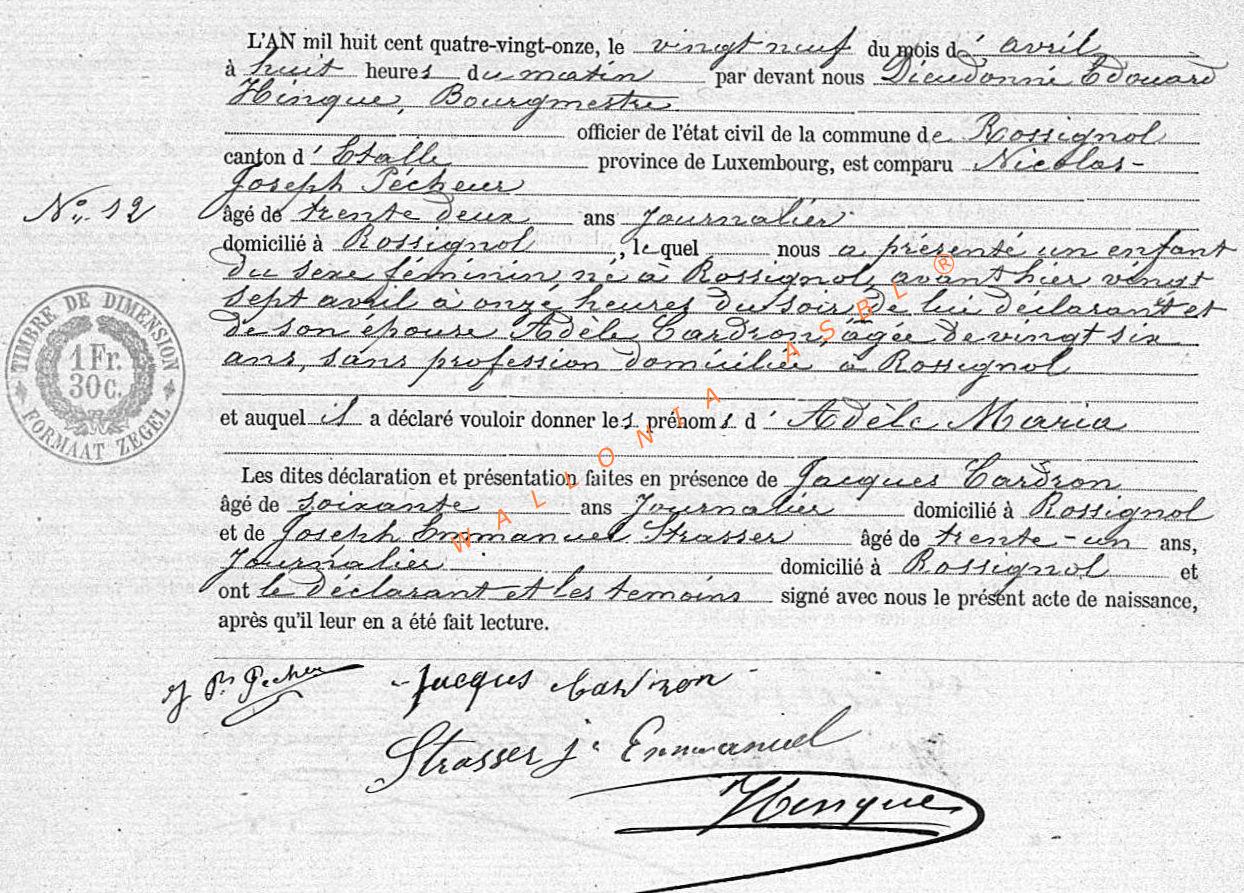 L'AN mil huit cent quatre-vingt-onze, le vingt neuf du mois d' avril
à huit heures du matin par devant nous Dieudonné Edouard
Hinque, Bourgmestre
officier de l'état civil de la commune de Rossignol
canton d' Etalle province de Luxembourg, est comparu Nicolas-
Joseph Pécheur
No. 12
âgé de trente deux ans Journalier
domicilié à Rossignol, lequel nous a présenté un enfant
du sexe féminin, né à Rossignol, avant hier vingt
sept avril à onze heures du soir de lui déclarant et
de son épouse Adèle Cardron, agée de vingt six
ans, sans profession domiciliée à Rossignol
TIMBRE DE DIMENSION
1 Fr.
30 c.
FORMAAT ZEGEL
et auquel il a déclaré vouloir donner les prénoms d' Adèle Maria
Les dites déclaration et présentation faites en présence de Jacques Cardron
âgé de soixante ans Journalier domicilié à Rossignol
et de Joseph Emmanuel Strasser âgé de trente-un ans,
Journalier domicilié à Rossignol et
ont le déclarant et les temoins signé avec nous le présent acte de naissance,
après qu'il leur en a été fait lecture.
WALLONIA ASBL ®
Pecheur Jacques Cardron
Strasser j. Emmanuel
Hinque